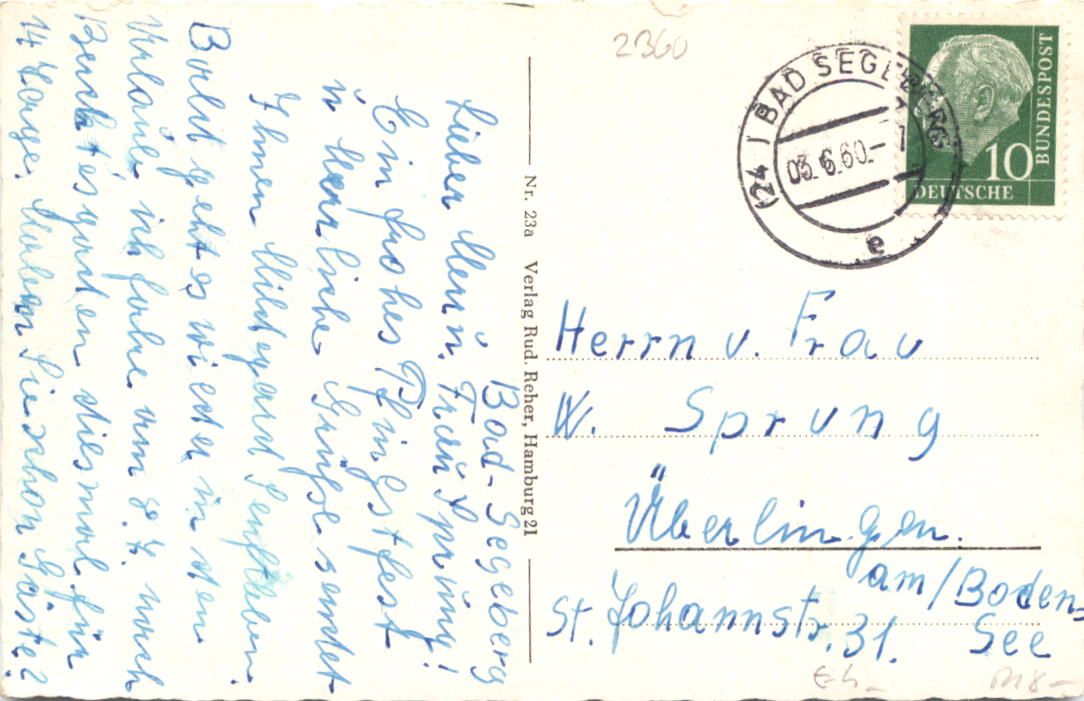 Bad-Segeberg
Lieber Herr u. Frau Sprung!
Ein frohes Pfingstfest
u. herrliche Grüße sendet
Ihnen Hildegard Senftleben
Bald geht es wieder in den
Urlaub, ich fahre am 8.7. nach
Berchtesgaden diesmal für
14 Tage. Haben Sie schon Gäste?
Nr. 23a Verlag Rud. Reher, Hamburg 21
2360
(24 BAD SEGEBERG
03.6.60.-
e
10
DEUTSCHE
BUNDESPOST
Herrn u. Frau
W. Sprung
Überlingen.
am/Boden-
See
St. Johannstr. 31.